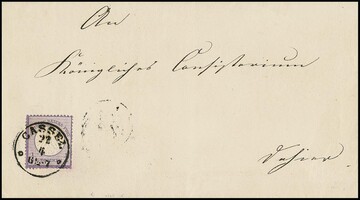 An
Königliches Consistorium
Dahier
CASSEL
22
4
6-7